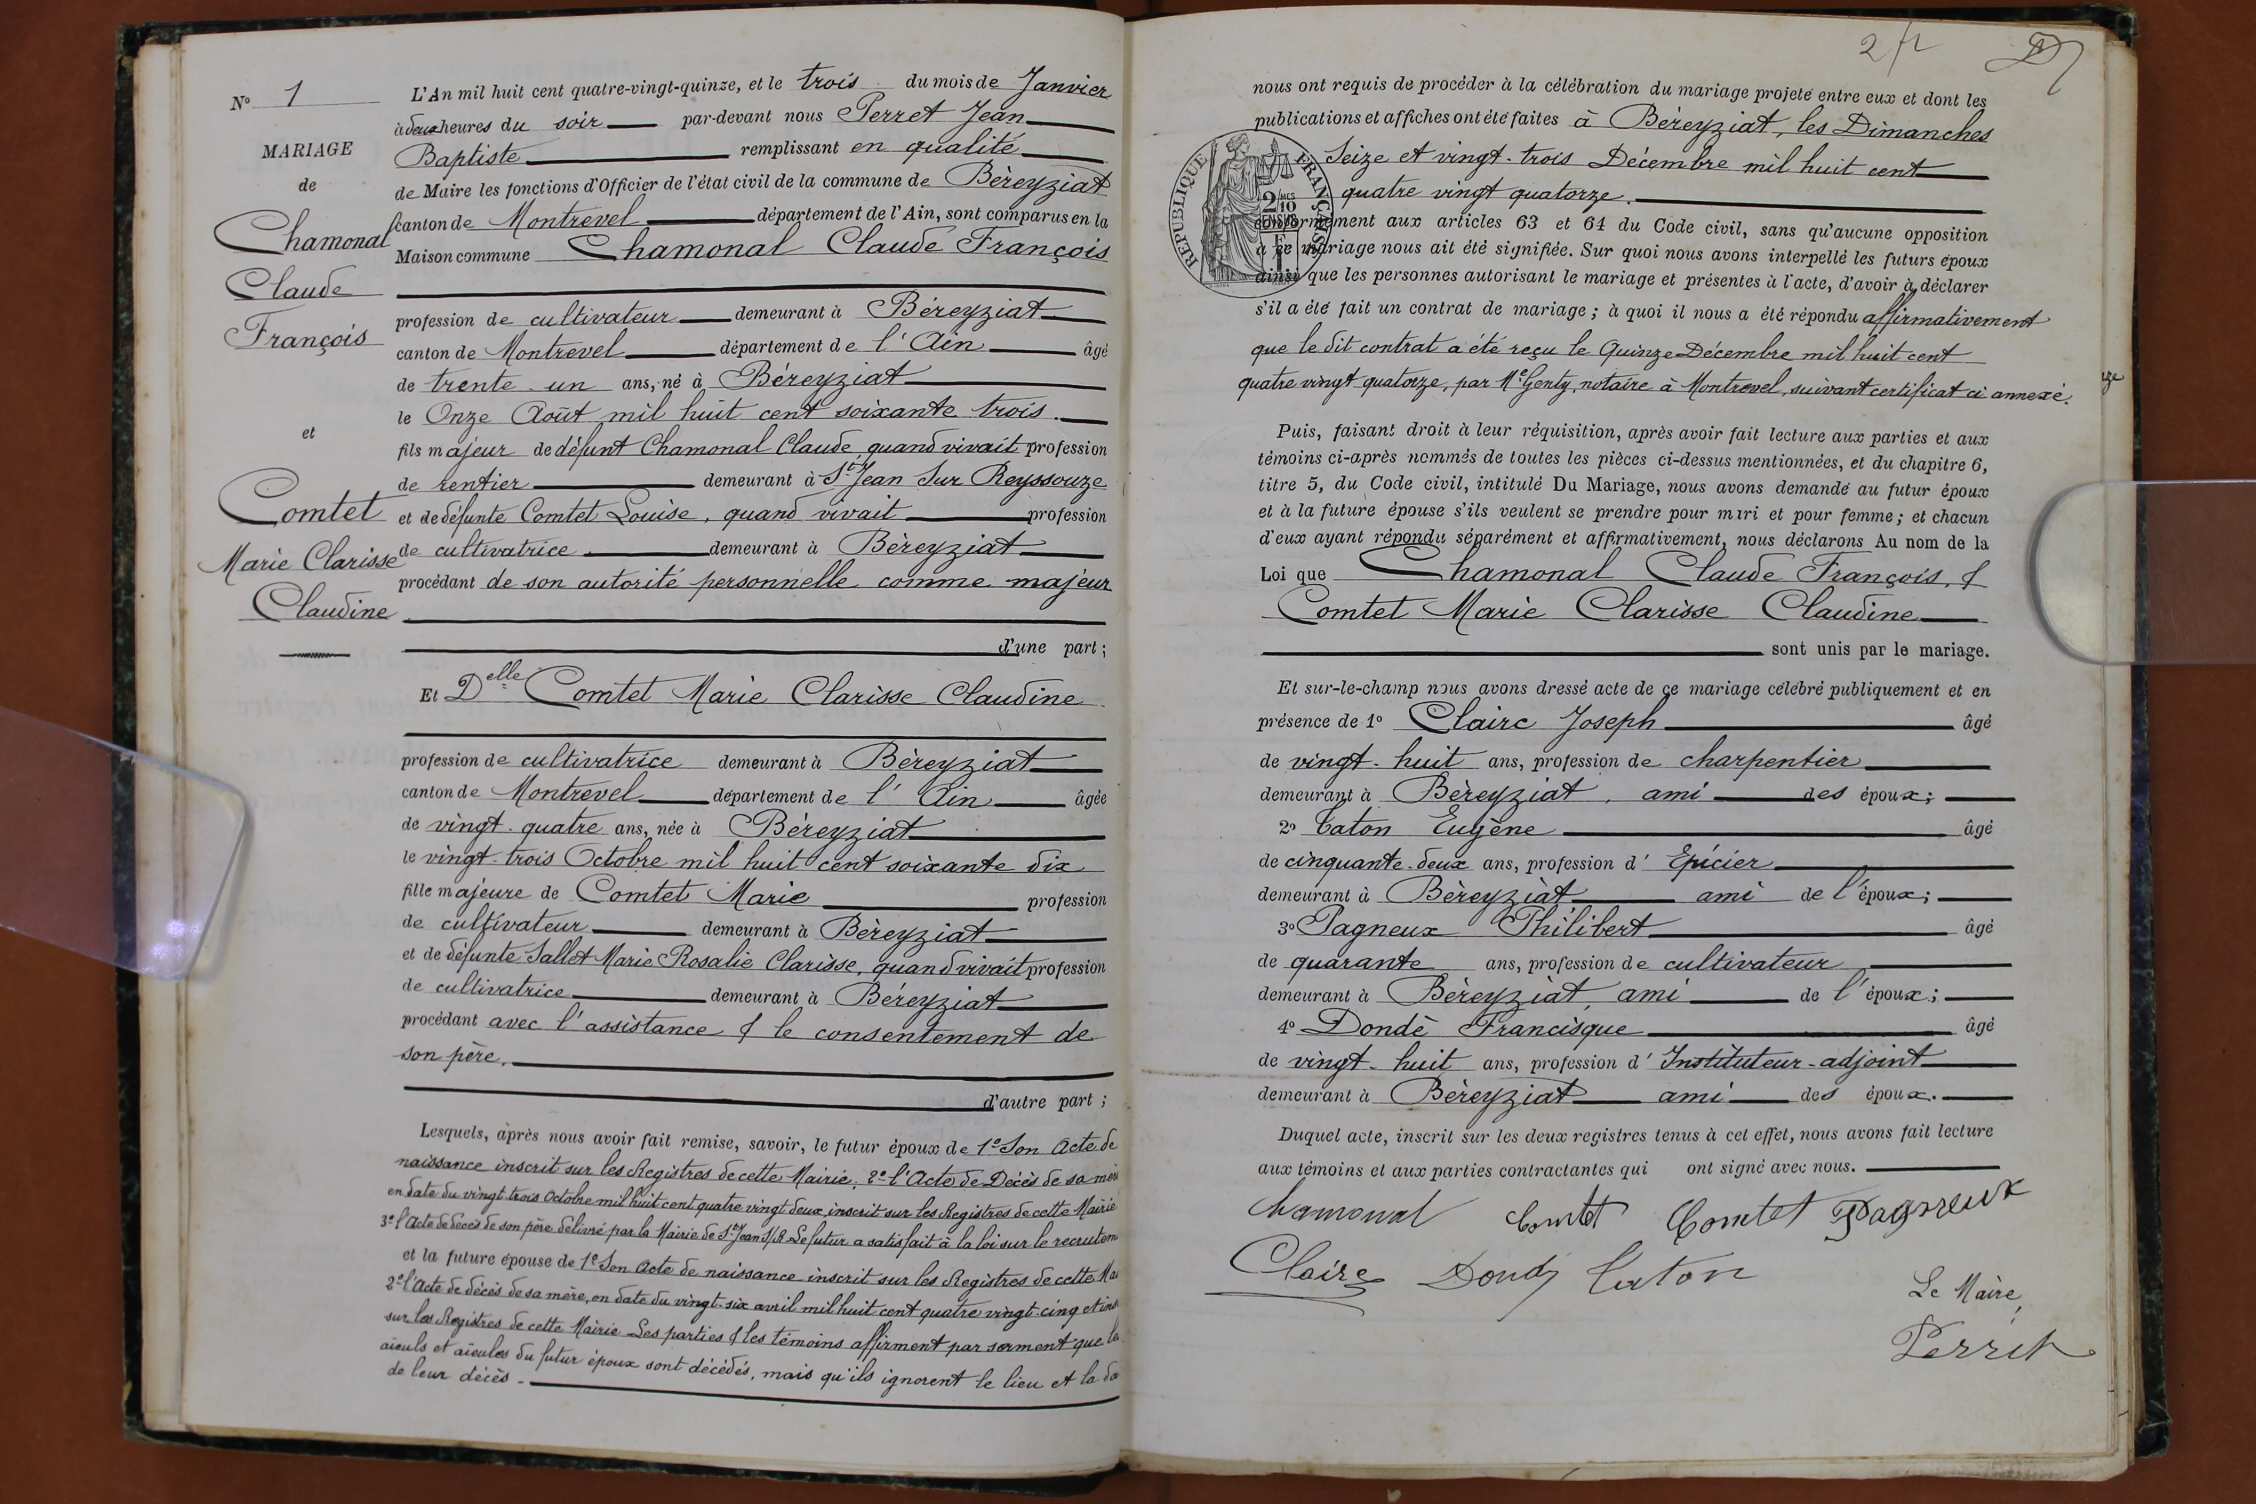 N° 1
MARIAGE
de
Chamonal
Claude
François
et
Comtet
Marie Clarisse
Claudine
L'An mil huit cent quatre-vingt-quinze, et le trois du mois de Janvier
à deux heures du soir par-devant nous Perret Jean
Baptiste remplissant en qualité
de Maire les fonctions d'Officier de l'état civil de la commune de Bèreyziat
canton de Montrevel département de l'Ain, sont comparus en la
Maison commune Chamonal Claude François
profession de cultivateur demeurant à Béreyziat
canton de Montrevel département de l'Ain âgé
de trente-un ans, né à Béreyziat
le Onze Août mil huit cent soixante trois.
fils majeur de défunt Chamonal Claude, quand vivait profession
de rentier demeurant à St Jean Sur Reyssouze
et de défunte Comtet Louise, quand vivait profession
de cultivatrice demeurant à Bèreyziat
procédant de son autorité personnelle comme majeur
d'une part ;
Et Delle Comtet Marie Clarisse Claudine
profession de cultivatrice demeurant à Bèreyziat
canton de Montrevel département de l'Ain âgée
de vingt-quatre ans, née à Béreyziat
le vingt-trois Octobre mil huit cent soixante dix
fille majeure de Comtet Marie profession
de cultivateur demeurant à Bèreyziat
et de défunte Sallet Marie Rosalie Clarisse, quand vivait profession
de cultivatrice demeurant à Béreyziat
procédant avec l'assistance & le consentement de
son père.
d'autre part ;
Lesquels, après nous avoir fait remise, savoir, le futur époux de 1° Son Acte de
naissance inscrit sur les Registres de cette Mairie, 2° l'Acte de Décès de sa mère
en date du vingt trois Octobre mil huit cent quatre vingt deux, inscrit sur les Registres de cette Mairie
3° l'Acte de décès de son père délivré par la Mairie de St Jean S/R Le futur a satisfait à la loi sur le recrutem
et la future épouse de 1° Son Acte de naissance inscrit sur les Registres de cette Mai
2° l'Acte de décès de sa mère, en date du vingt-six avril mil huit cent quatre vingt-cinq et ins
sur les Registres de cette Mairie Les parties & les témoins affirment par serment que les
aïeuls et aïeules du futur époux sont décédés, mais qu'ils ignorent le lieu et la da
de leur décès.
2/2
nous ont requis de procéder à la célébration du mariage projeté entre eux et dont les
publications et affiches ont été faites à Bèreyziat, les Dimanches
Seize et vingt-trois Décembre mil huit cent
quatre vingt quatorze.
RÉPUBLIQUE FRANÇAISE
2/10
conformément aux articles 63 et 64 du Code civil, sans qu'aucune opposition
à ce mariage nous ait été signifiée. Sur quoi nous avons interpellé les futurs époux
ainsi que les personnes autorisant le mariage et présentes à l'acte, d'avoir à déclarer
s'il a été fait un contrat de mariage ; à quoi il nous a été répondu affirmativement
que le dit contrat a été reçu le Quinze Décembre mil huit cent
quatre vingt quatorze, par Me Genty, notaire à Montrevel, suivant certificat ci-annexé.
Puis, faisant droit à leur réquisition, après avoir fait lecture aux parties et aux
témoins ci-après nommés de toutes les pièces ci-dessus mentionnées, et du chapitre 6,
titre 5, du Code civil, intitulé Du Mariage, nous avons demandé au futur époux
et à la future épouse s'ils veulent se prendre pour mari et pour femme ; et chacun
d'eux ayant répondu séparément et affirmativement, nous déclarons Au nom de la
Loi que Chamonal Claude François, &
Comtet Marie Clarisse Claudine
sont unis par le mariage.
Et sur-le-champ nous avons dressé acte de ce mariage célébré publiquement et en
présence de 1° Claire Joseph âgé
de vingt-huit ans, profession de charpentier
demeurant à Bèreyziat, ami des époux ;
2° Caton Eugène âgé
de cinquante-deux ans, profession d'Epicier
demeurant à Bèreyziat ami de l'époux ;
3° Pagneux Philibert âgé
de quarante ans, profession de cultivateur
demeurant à Bèreyziat, ami de l'époux ;
4° Dondè Francisque âgé
de vingt-huit ans, profession d'Instituteur-adjoint
demeurant à Bèreyziat ami des époux.
Duquel acte, inscrit sur les deux registres tenus à cet effet, nous avons fait lecture
aux témoins et aux parties contractantes qui ont signé avec nous.
Chamonal Comtet Comtet Pagneux
Claire Dondé Caton
Le Maire,
Perret